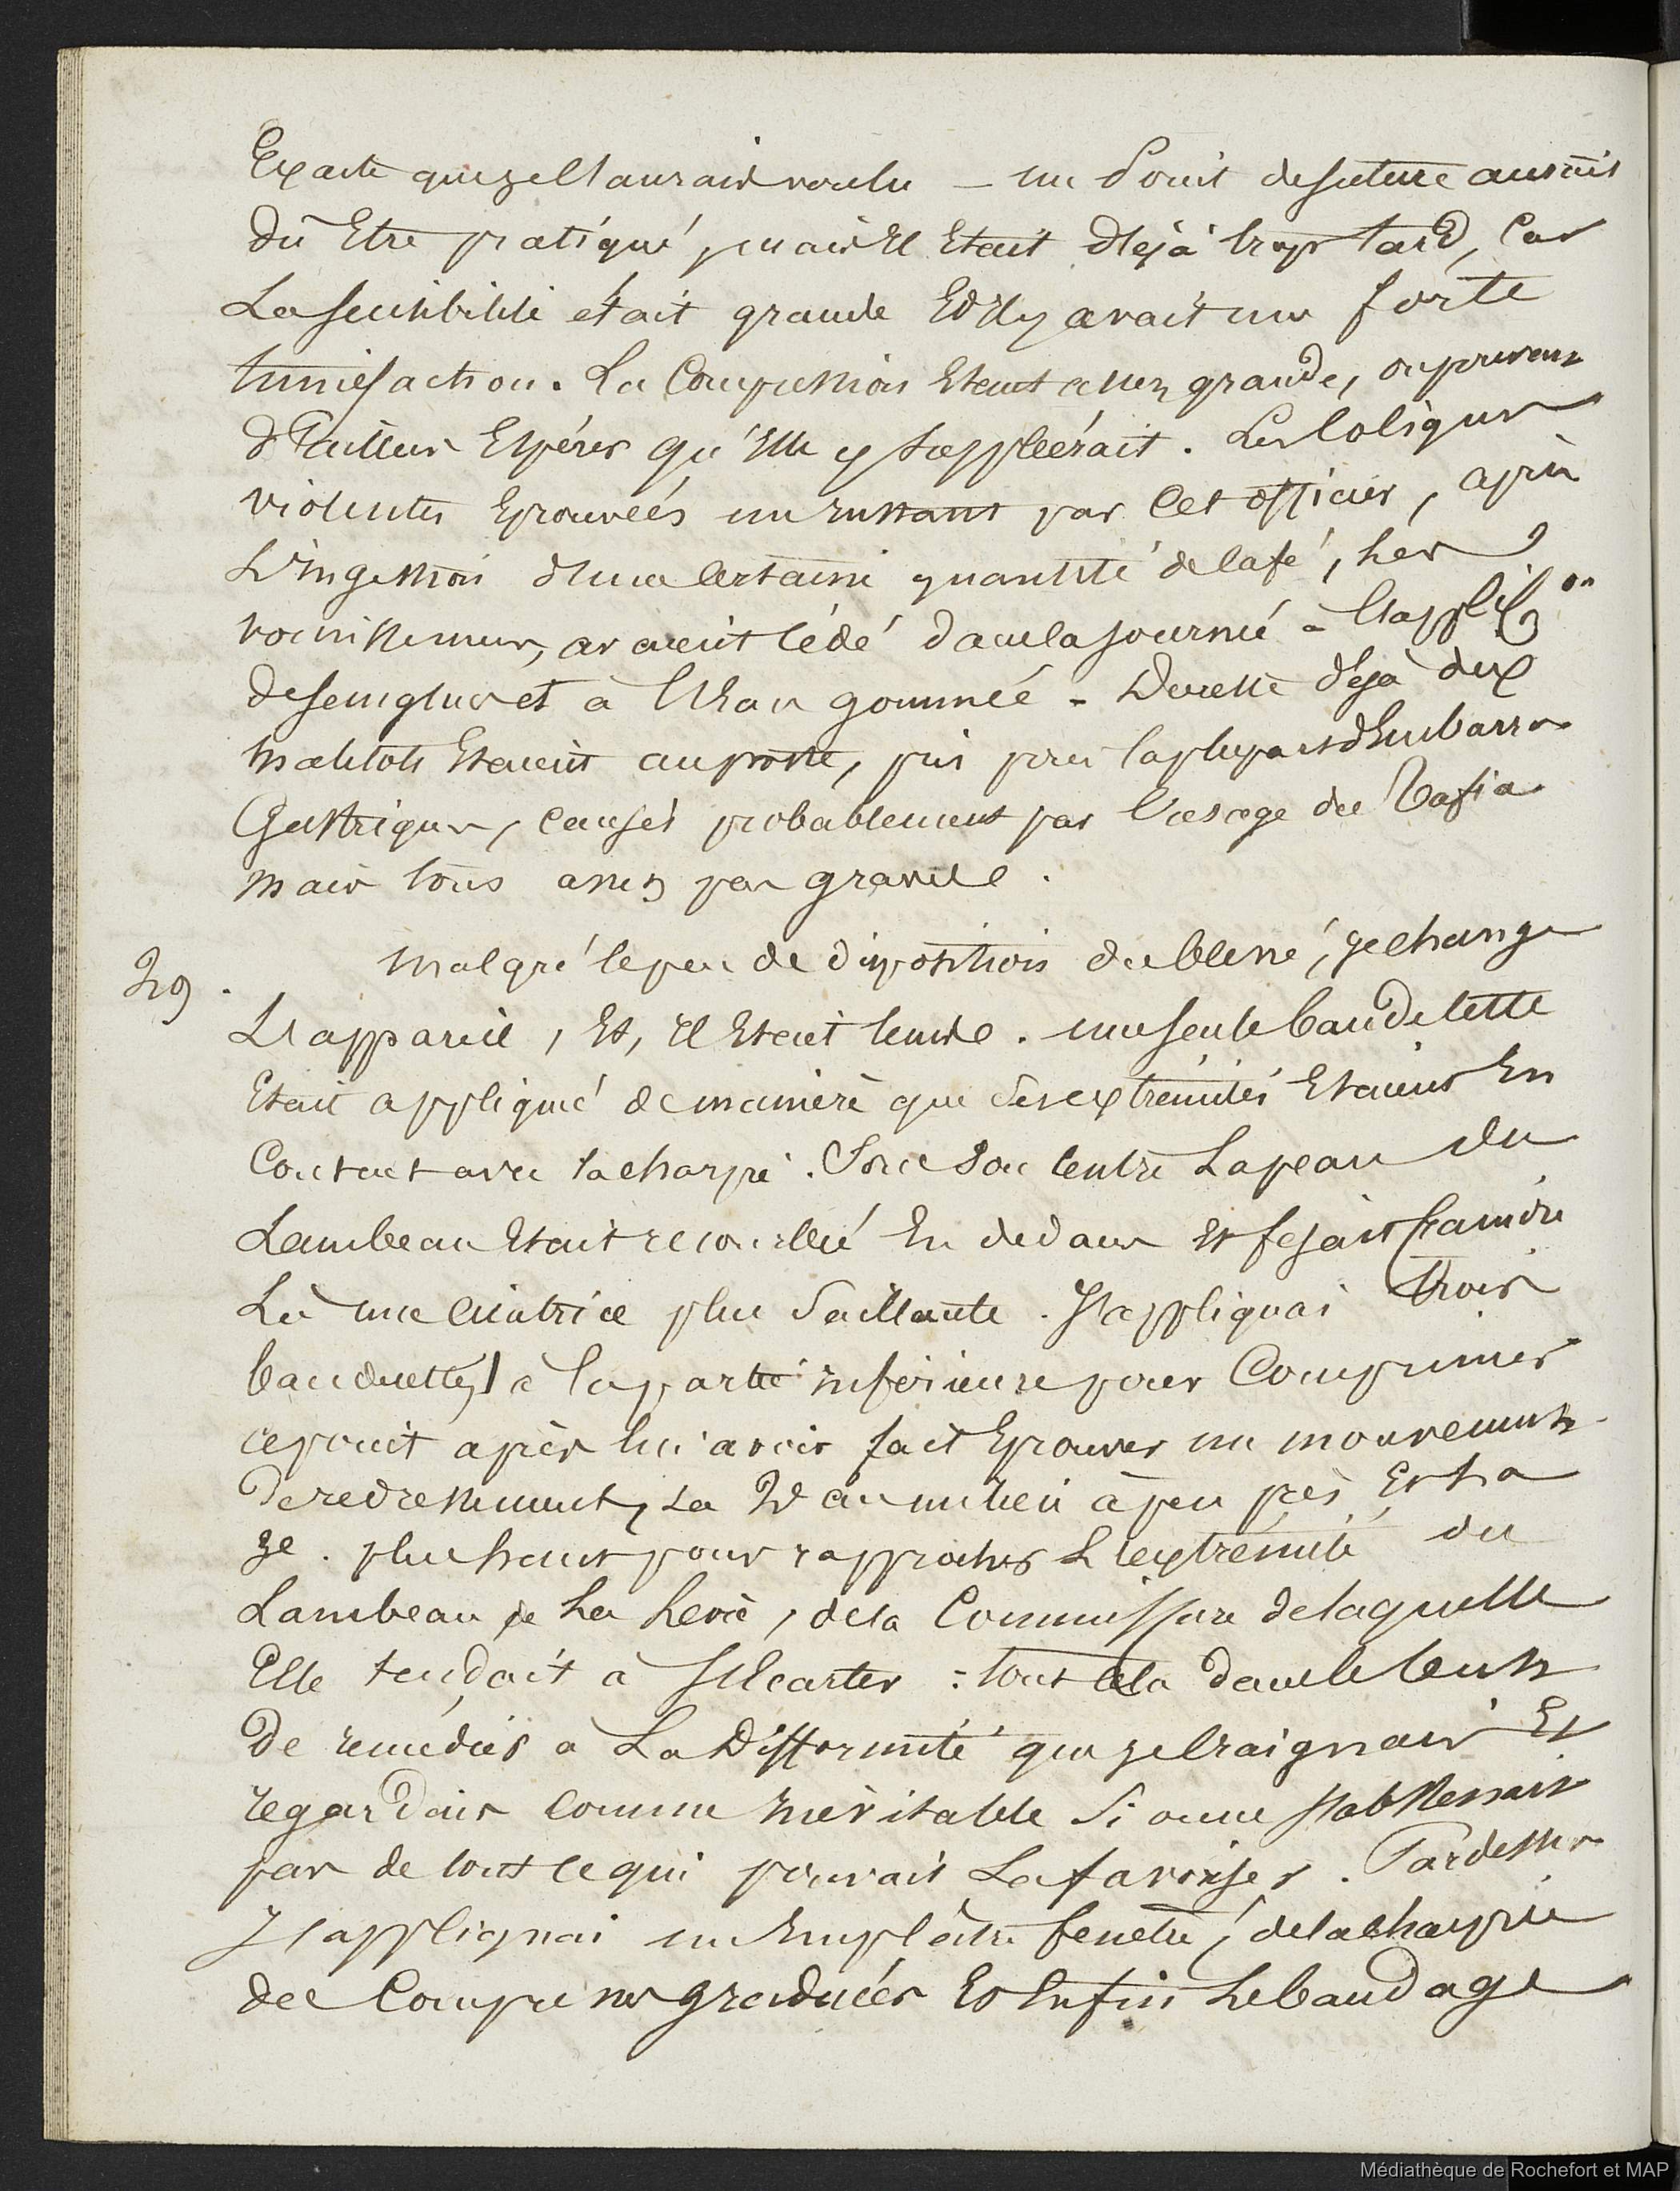 Exacte que je l'aurais voulu – un Point de suture aurait
dû Etre pratiqué, mais Il Etait déjà trop tard, Car
La sensibilité était grande Et Il y avait une forte
tuméfaction. La Compression Etait assez grande, on pouvait
d'ailleurs Espérer qu'Elle y suppléérait. Les Coliques
violentes Eprouvées un Instant par Cet officier, après
L'ingestion d'une Certaine quantité de Café, les
vomissemens, avaient Cédé dans la journée à l'applic.on
de sangsues et à l'Eau gommée – Du reste déjà dix
Matelots Etaient au poste, pris pour la plupart d'Embarras
Gastriques, causés probablement par l'usage du Tafia
Mais tous assez peu grave.
29. Malgré le peu de disposition du blessé, je change
L'appareil, Et, Il Etait tems. une seule bandelette
Etait appliqué de manière que ses extrémités Etaient En
Contact avec la charpie. Son entre La peau du
Lambeau Etait recourbé En dedans Et fesait craindre
Là une Cicatrice plus Saillante. J'appliquai trois
bandelettes à la partie inférieure pour Comprimer
ce point après lui avoir fait Eprouver un mouvement
de redressement, La 2e au milieu à peu près Et la
3e. plus haut pour rapprocher L'extrémité du
Lambeau de La Levre, de la Commissure de laquelle
Elle tendait à s'Ecarter : tout cela dans le but
De remédier à La Difformité que je Craignais Et
regardais Comme Inévitable Si on ne s'abstenait
pas de tout ce qui pouvait La favoriser. Pardessus
J'appliquai un Emplâtre fenêtré, de la charpie
des Compresses graduées Et Enfin Le bandage
Médiathèque de Rochefort et MAP